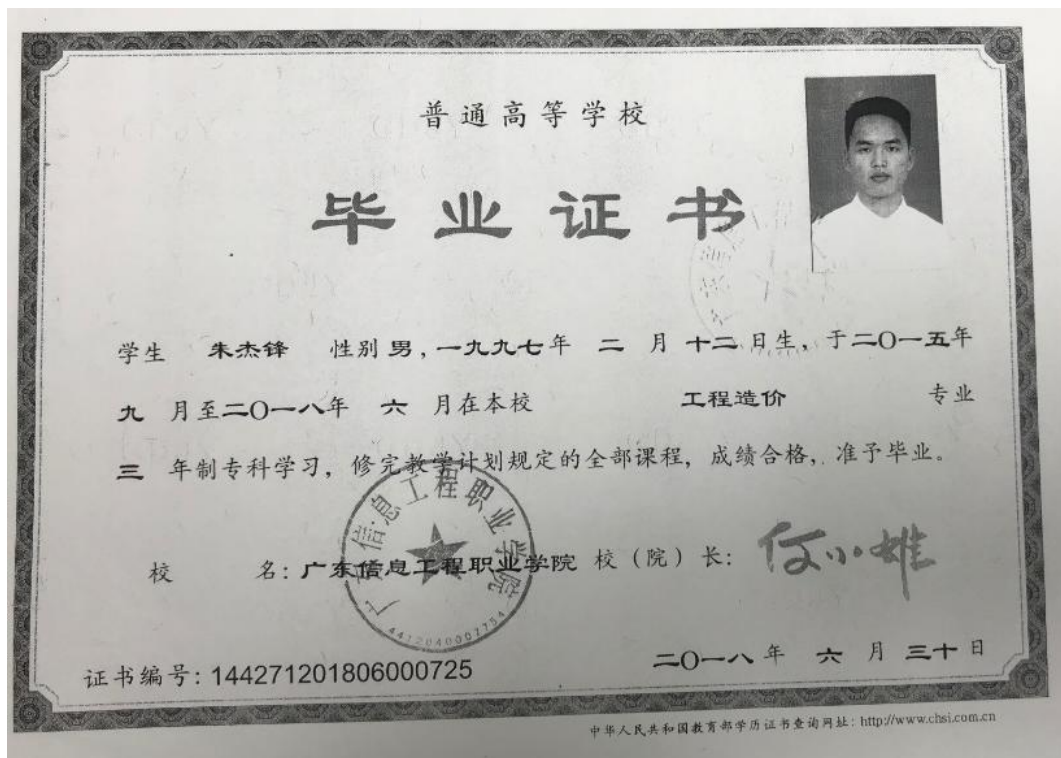 普通高等学校
毕业证书
学生 朱杰锋 性别 男，一九九七年 二 月 十二 日生，于二〇一五年
九 月至二〇一八年 六 月在本校 工程造价 专业
三 年制专科学习，修完教学计划规定的全部课程，成绩合格，准予毕业。
广东信息工程职业学院
4412040007754
校 名：广东信息工程职业学院 校（院）长：何小雄
证书编号：144271201806000725
二〇一八 年 六 月 三十 日
中华人民共和国教育部学历证书查询网址：http://www.chsi.com.cn